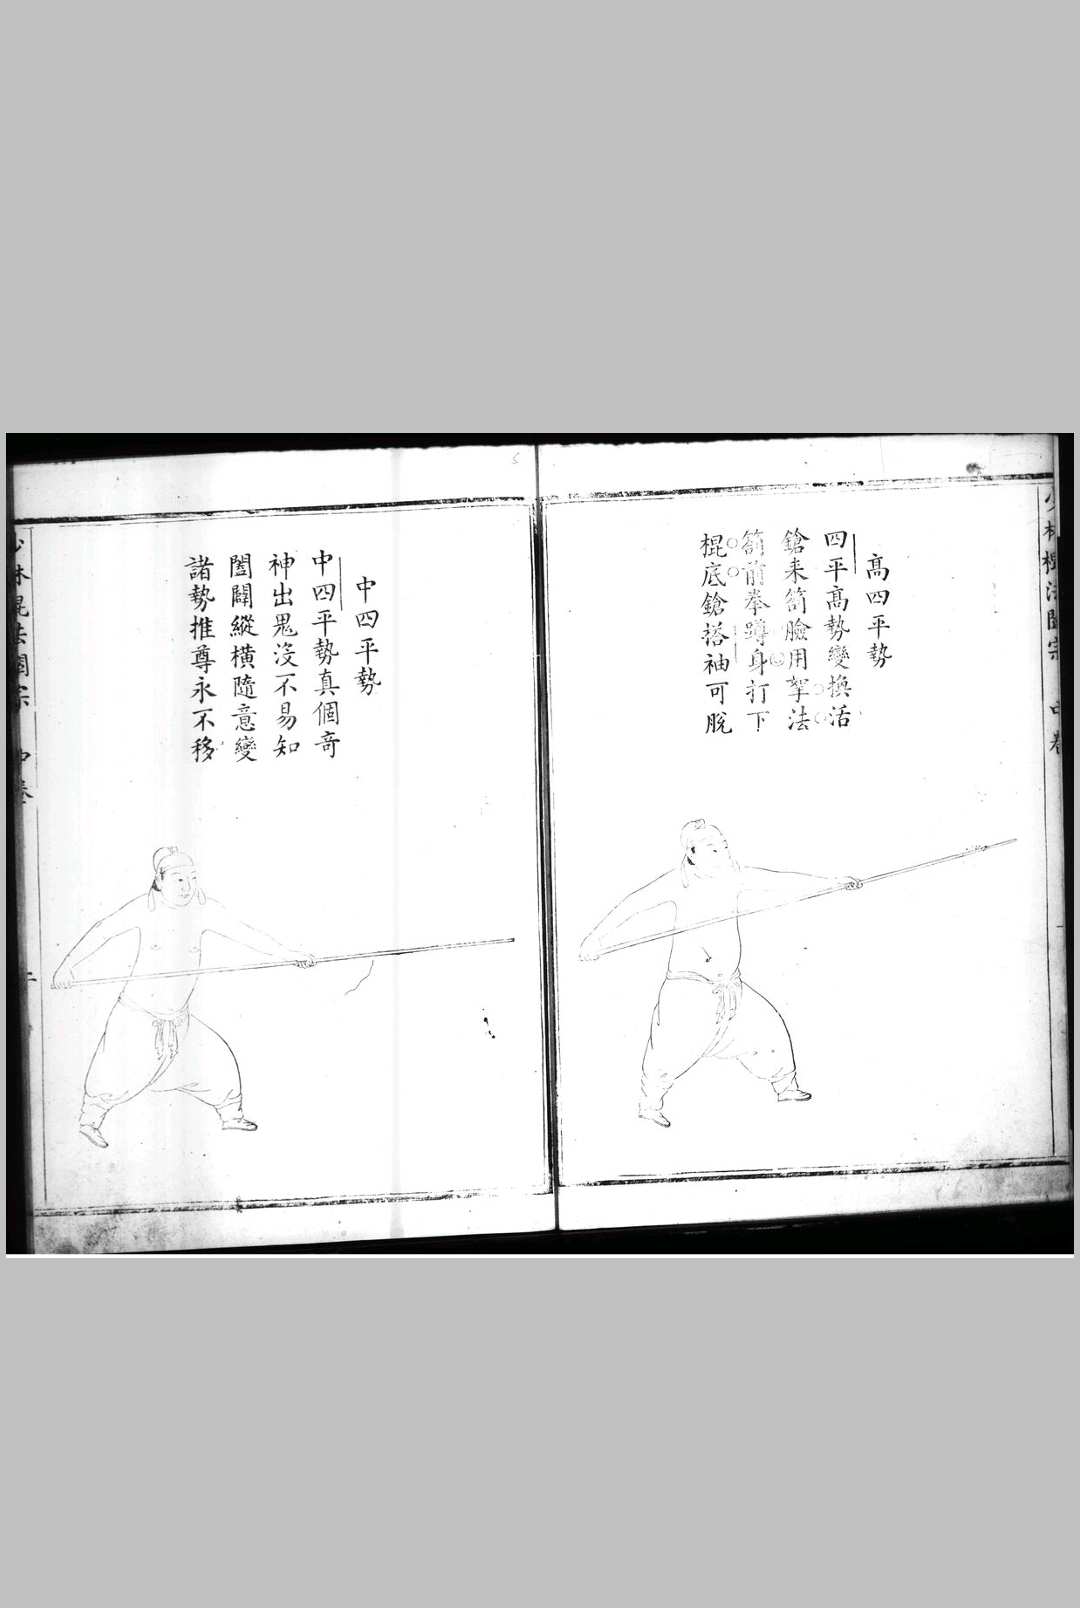 少林棍法闡宗 中卷
高四平勢
四平高勢變換活
鎗来劄臉用拏法
劄前拳蹲身打下
棍底鎗搭袖可脫
中四平勢
中四平勢真個竒
神出鬼没不易知
闔闢縱橫隨意變
諸勢推尊永不移
少林棍法闡宗 中卷